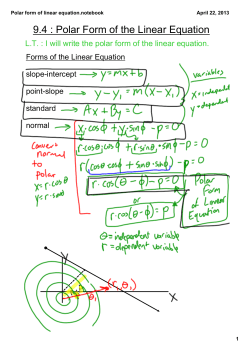 Polar form of linear equation.notebook
April 22, 2013
9.4 : Polar Form of the Linear Equation
L.T. : I will write the polar form of the linear equation.
Forms of the Linear Equation
slope-intercept → y = mx + b
variables
point-slope → y - y₁ = m(x - x₁)
x = independent
y = dependent
standard → Ax + By = C
normal → x·cosϕ + y·sinϕ - p = 0
Convert
normal
to
Polar
x = r·cosθ
y = r·sinθ
r·cosθ·cosϕ + r·sinθ·sinϕ - p = 0
r(cosθcosϕ + sinθ·sinϕ) - p = 0
r·cos(θ - ϕ) - p = 0
or
r·cos(θ - ϕ) = p
Polar
Form
of Linear
Equation
θ = independent variable
r = dependent variable
y
(r, θ₁)
θ₁
x
1